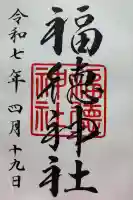 福徳神社
令和七年四月十九日